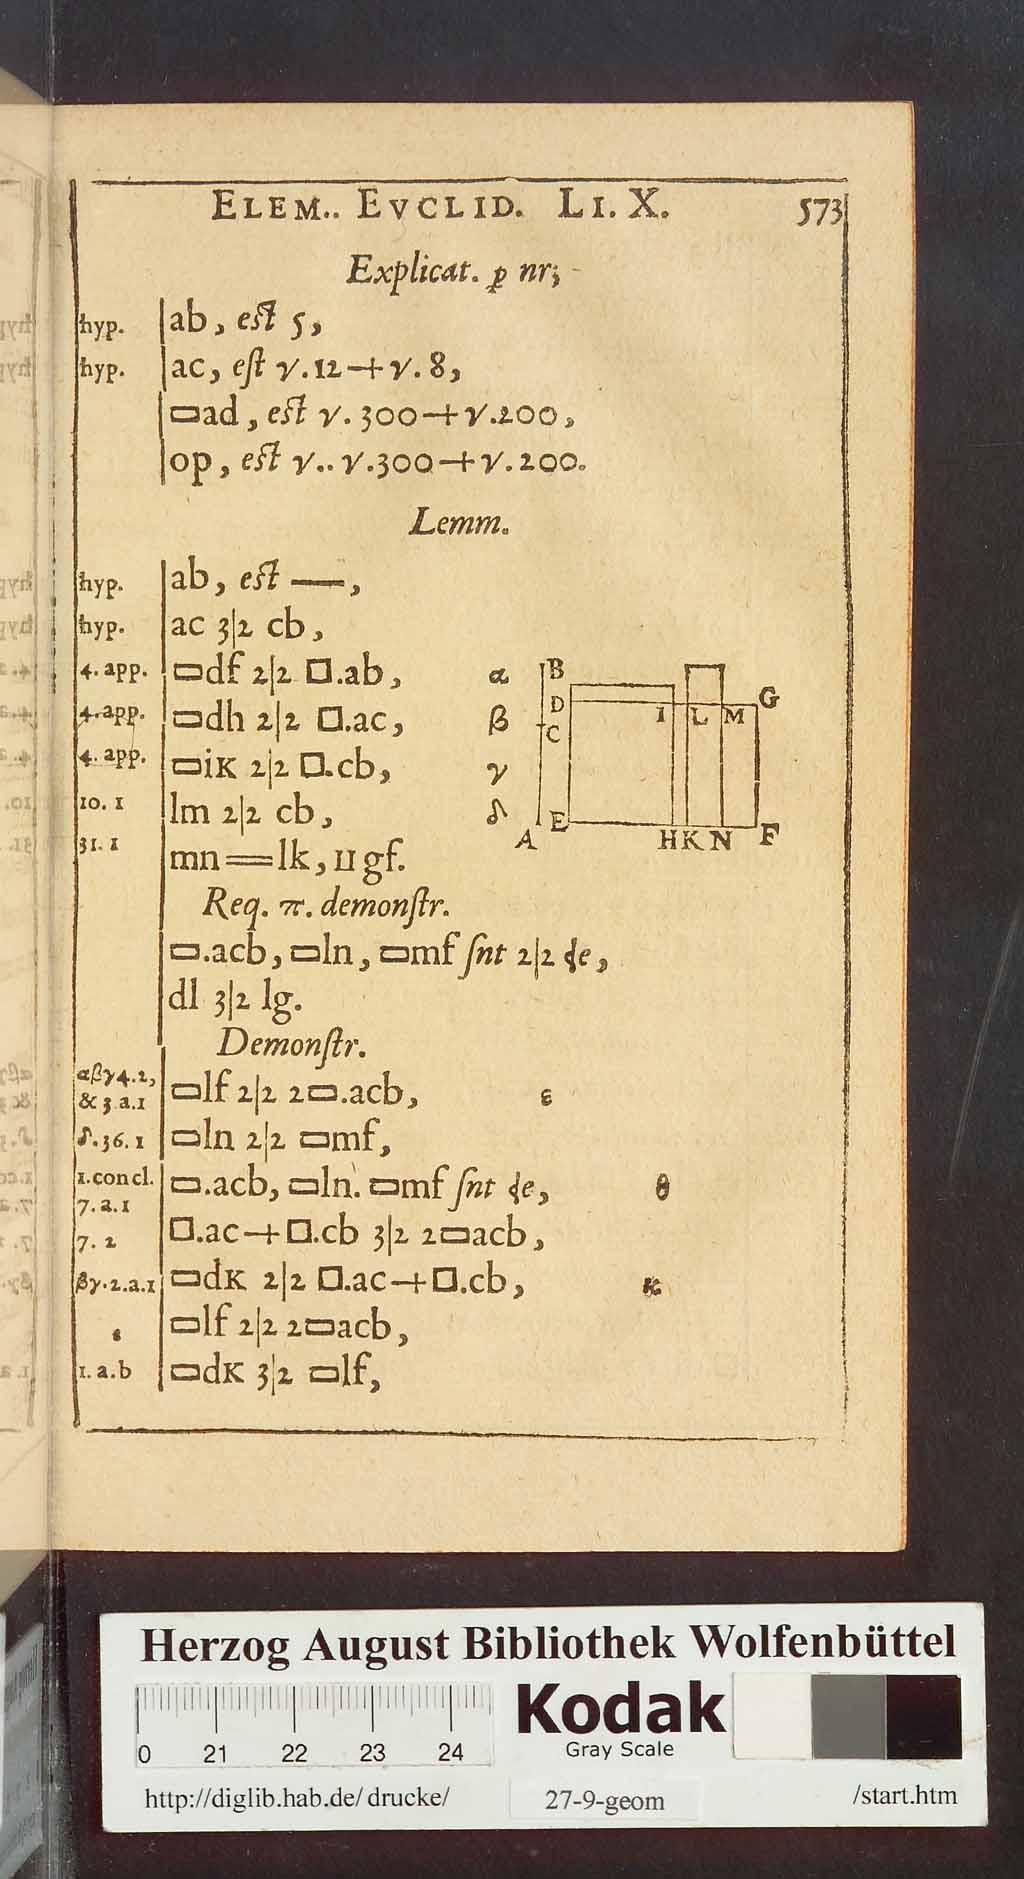 ELEM.. EVCLID. LI. X. 573
Explicat. ꝑ nr;
hyp. ab, est 5,
hyp. ac, est γ.12+γ.8,
▭ad, est γ.300+γ.200,
op, est γ..γ.300+γ.200.
Lemm.
hyp. ab, est —,
hyp. ac 3|2 cb,
4. app. ▭df 2|2 □.ab, α
4. app. ▭dh 2|2 □.ac, β
4. app. ▭iK 2|2 □.cb, γ
10. 1 lm 2|2 cb, δ
31. 1 mn=lk, II gf.
B
D
C
A
E
I
L
M
G
H K N
F
Req. π. demonſtr.
▭.acb, ▭ln, ▭mf ſnt 2|2
dl 3|2 lg.
Demonſtr.
αβγ4.2,
& 3.a.1 ▭lf 2|2 2▭.acb, ε
δ.36.1 ▭ln 2|2 ▭mf,
1.concl.
7.a.1 ▭.acb, ▭ln. ▭mf ſnt θ
7. 2 □.ac+□.cb 3|2 2▭acb,
βγ.2.a.1 ▭dK 2|2 □.ac+□.cb, κ
ε ▭lf 2|2 2▭acb,
1. a.b ▭dK 3|2 ▭lf,
Herzog August Bibliothek Wolfenbüttel
0 21 22 23 24
Kodak
Gray Scale
http://diglib.hab.de/drucke/ 27-9-geom /start.htm